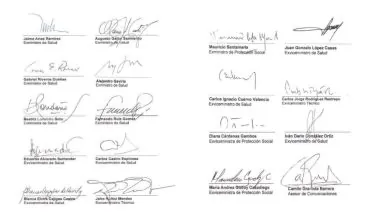 Jaime Arias Ramírez
Exministro de Salud
Augusto Galán Sarmiento
Exministro de Salud
Gabriel Riveros Dueñas
Exministro de Salud
Alejandro Gaviria
Exministro de Salud
Beatriz Londoño Soto
Exministra de Salud
Fernando Ruiz Gómez
Exministro de Salud
Eduardo Alvarado Santander
Exviceministro de Salud
Carlos Castro Espinosa
Exviceministro de Salud
Blanca Elvira Cajigas
Exviceministra de Salud
Jairo Núñez Méndez
Exviceministro Técnico
Mauricio Santamaría
Exministro de Protección Social
Juan Gonzalo López Casas
Exviceministro de Salud
Carlos Ignacio Cuervo Valencia
Exviceministro de Protección Social
Carlos Jorge Rodríguez Restrepo
Exviceministro Técnico
Diana Cárdenas Gamboa
Exviceministra de Protección Social
Iván Darío González Ortiz
Exviceministro de Salud
María Andrea Godoy Casadiego
Exviceministra de Protección Social
Camilo Granada Barrera
Asesor de Comunicaciones